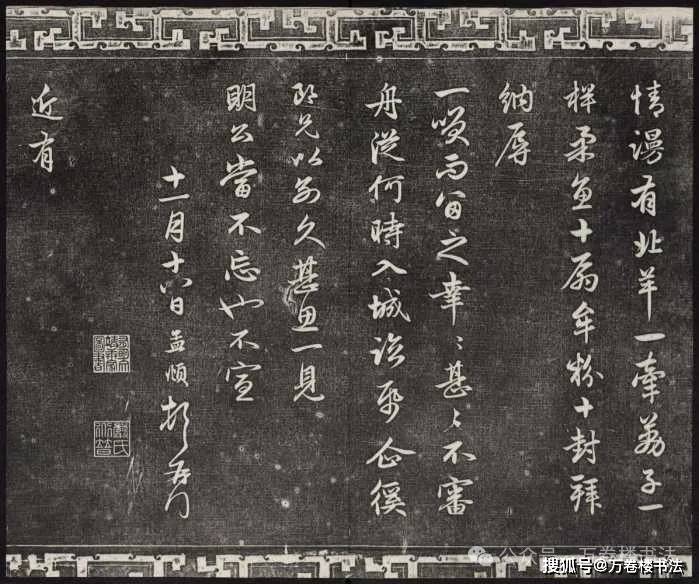 情謾有北羊一牽荔子一
柈柔魚十扇牟粉十封拜
納辱
一笑而留之幸〻甚〻不審
舟從何時入城企徯
郎兄以别久甚思一見
明公當不忘也不宣
十一月十六日孟頫頓首
近有
公众号·万卷楼书法
搜狐号@万卷楼书法